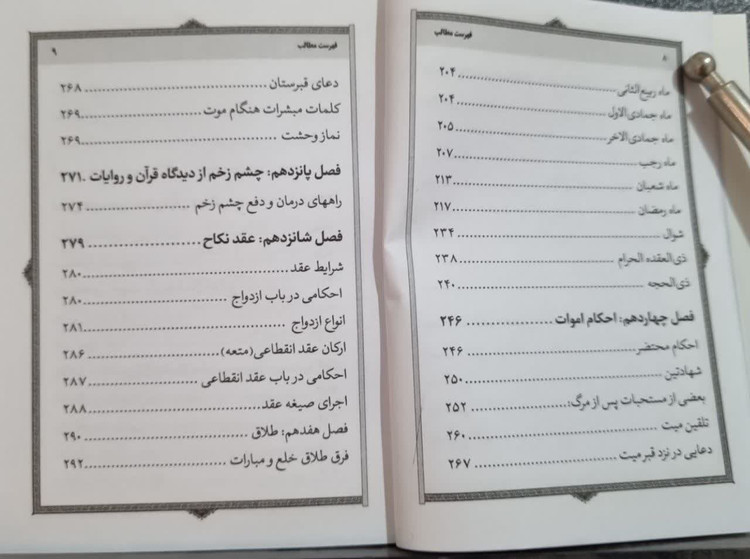 فهرست مطالب
۸
ماه ربیع‌الثانی ........ ۲۰۴
ماه جمادی‌الاول ........ ۲۰۴
ماه جمادی‌الاخر ........ ۲۰۵
ماه رجب ........ ۲۰۷
ماه شعبان ........ ۲۱۳
ماه رمضان ........ ۲۱۷
شوال ........ ۲۳۴
ذی‌العقده الحرام ........ ۲۳۸
ذی‌الحجه ........ ۲۴۰
فصل چهاردهم: احکام اموات ........ ۲۴۶
احکام محتضر ........ ۲۴۶
شهادتین ........ ۲۵۰
بعضی از مستحبات پس از مرگ: ........ ۲۵۲
تلقین میت ........ ۲۶۰
دعایی در نزد قبر میت ........ ۲۶۷
فهرست مطالب
۹
دعای قبرستان ........ ۲۶۸
کلمات مبشرات هنگام موت ........ ۲۶۹
نماز وحشت ........ ۲۶۹
فصل پانزدهم: چشم زخم از دیدگاه قرآن و روایات .۲۷۱
راههای درمان و دفع چشم زخم ........ ۲۷۴
فصل شانزدهم: عقد نکاح ........ ۲۷۹
شرایط عقد ........ ۲۸۰
احکامی در باب ازدواج ........ ۲۸۰
انواع ازدواج ........ ۲۸۱
ارکان عقد انقطاعی(متعه) ........ ۲۸۶
احکامی در باب عقد انقطاعی ........ ۲۸۷
اجرای صیغه عقد ........ ۲۸۸
فصل هفدهم: طلاق ........ ۲۹۰
فرق طلاق خلع و مبارات ........ ۲۹۲